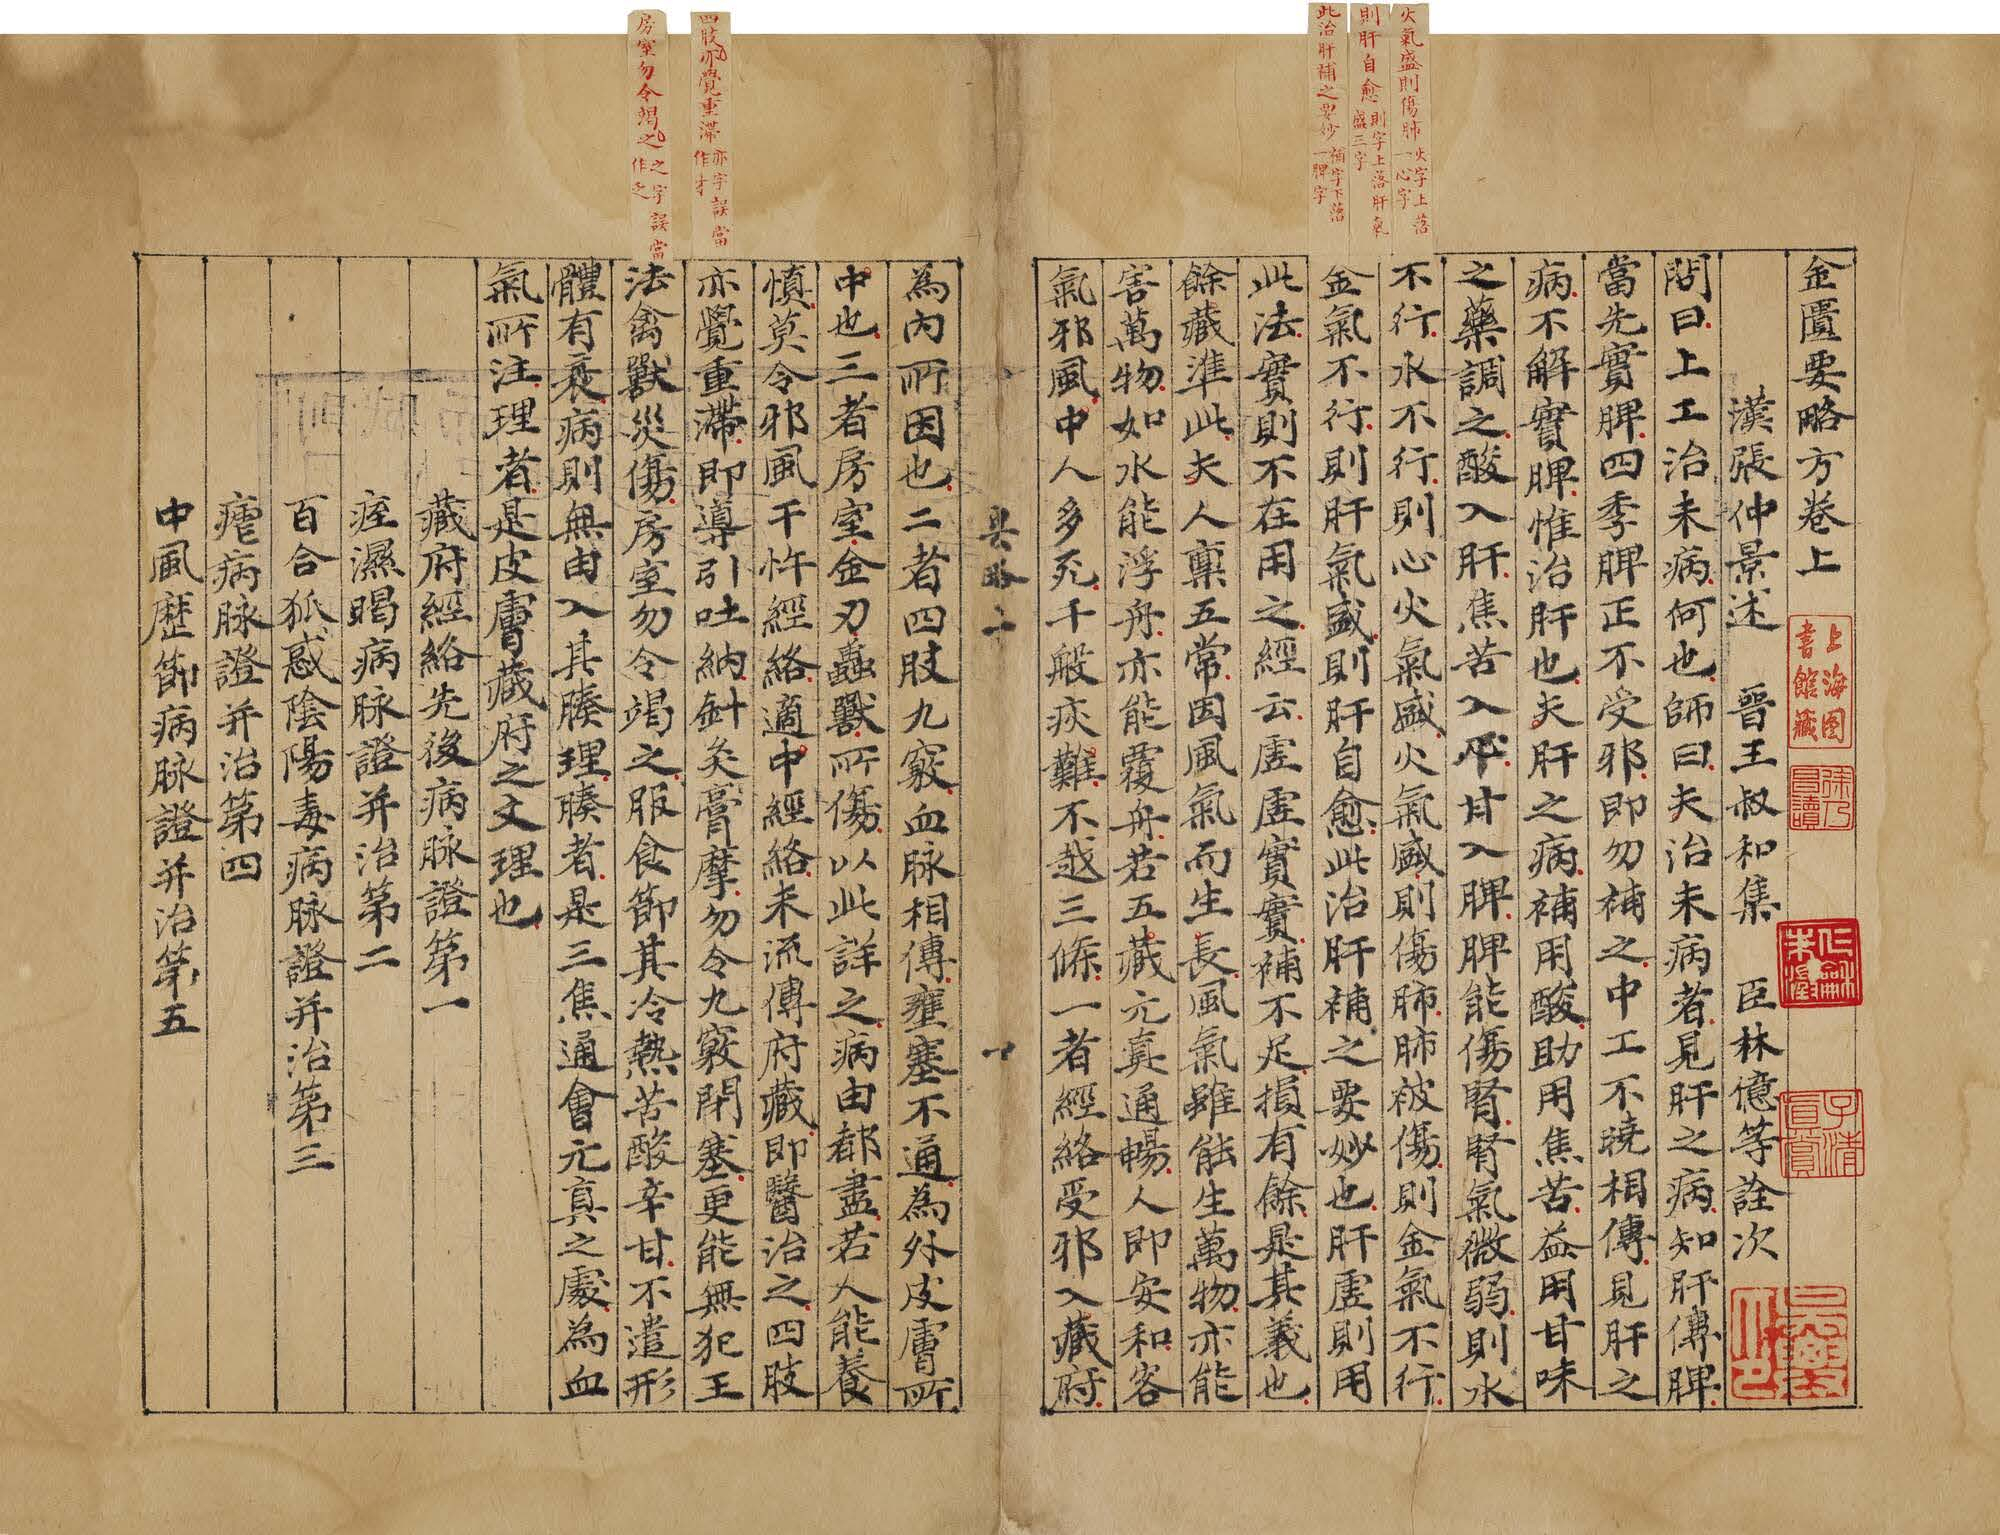 火氣盛則傷肺 火字上落一心字
則肝自愈 則字上落肝氣盛三字
此治肝補之要妙 補字下落一脾字
四肢亦覺重滯 亦字誤當作才
房室勿令竭之 之字誤當作乏
金匱要略方卷上
上海图書館藏
徐乃昌讀
漢張仲景述 晉王叔和集 臣林億等詮次
問曰上工治未病何也師曰夫治未病者見肝之病知肝傳脾
當先實脾四季脾正不受邪即勿補之中工不曉相傳見肝之
病不解實脾惟治肝也夫肝之病補用酸助用焦苦益用甘味
之藥調之酸入肝焦苦入心甘入脾脾能傷腎腎氣微弱則水
不行水不行則心火氣盛火氣盛則傷肺肺被傷則金氣不行
金氣不行則肝氣盛則肝自愈此治肝補之要妙也肝虛則用
此法實則不在用之經云虛虛實實補不足損有餘是其義也
餘藏準此夫人稟五常因風氣而生長風氣雖能生萬物亦能
害萬物如水能浮舟亦能覆舟若五藏元真通暢人即安和客
氣邪風中人多死千般疢難不越三條一者經絡受邪入藏府
具略上
一
為內所因也二者四肢九竅血脉相傳壅塞不通為外皮膚所
中也三者房室金刃蟲獸所傷以此詳之病由都盡若人能養
慎莫令邪風干忤經絡適中經絡未流傳府藏即醫治之四肢
亦覺重滯即導引吐納針灸膏摩勿令九竅閉塞更能無犯王
法禽獸災傷房室勿令竭之服食節其冷熱苦酸辛甘不遣形
體有衰病則無由入其腠理腠者是三焦通會元真之處為血
氣所注理者是皮膚藏府之文理也
藏府經絡先後病脉證第一
痓濕暍病脉證并治第二
百合狐惑陰陽毒病脉證并治第三
瘧病脉證并治第四
中風歷節病脉證并治第五